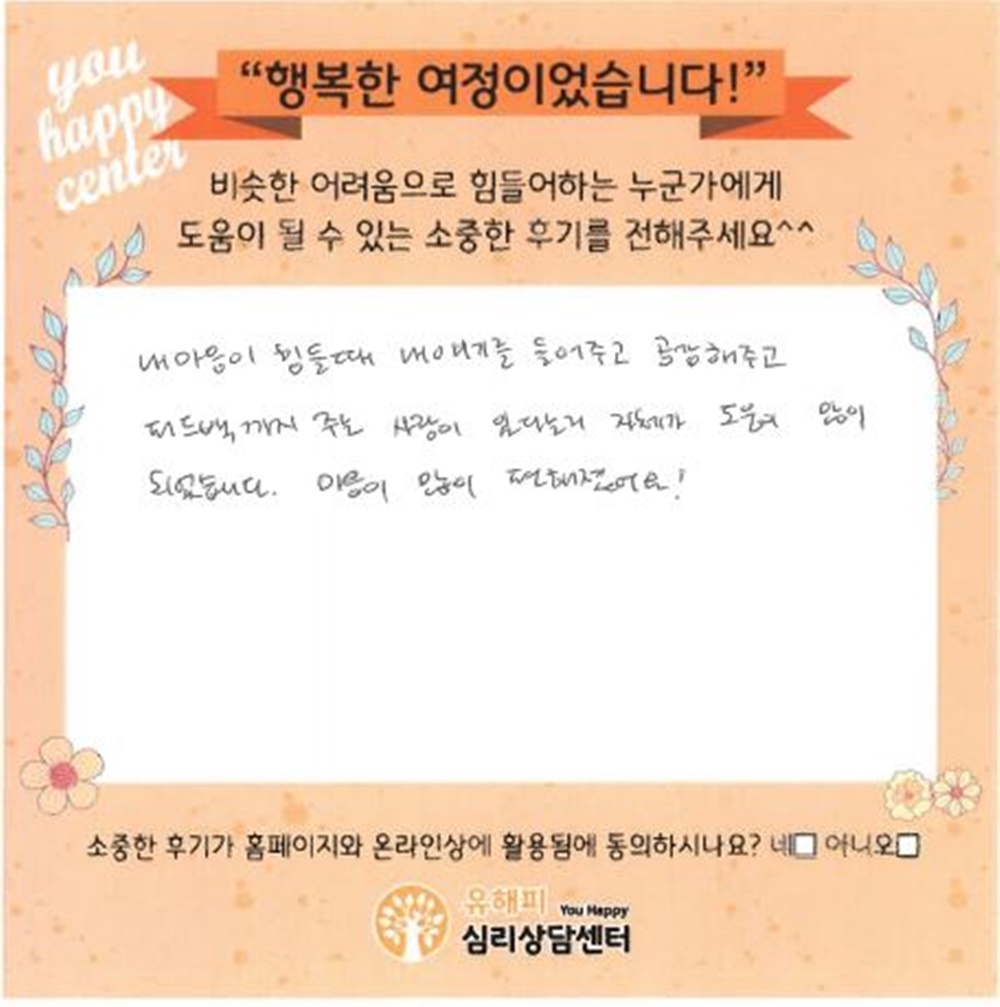 you
happy
center
“행복한 여정이었습니다!”
비슷한 어려움으로 힘들어하는 누군가에게
도움이 될 수 있는 소중한 후기를 전해주세요^^
내마음이 힘들때 내얘기를 들어주고 공감해주고
피드백까지 주는 사람이 있다는거 자체가 도움이 많이
되었습니다. 마음이 많이 편해졌어요!
소중한 후기가 홈페이지와 온라인상에 활용됨에 동의하시나요? 네□ 아니오□
유해피 You Happy
심리상담센터